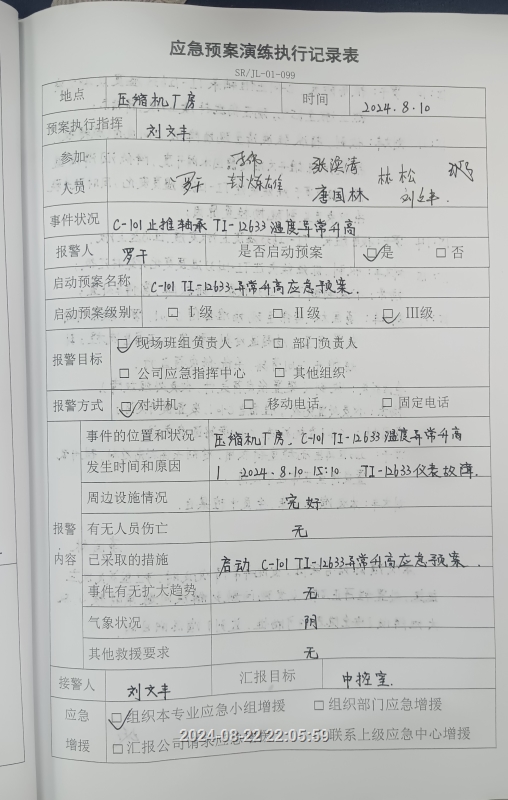 应急预案演练执行记录表
SR/JL-01-099
地点 压缩机厂房 时间 2024.8.10
预案执行指挥 刘文丰
参加 张溪涛 林松
人员 罗干 封炼雄 唐国林 刘文丰
事件状况 C-101止推轴承 TI-12633温度异常升高
报警人 罗干 是否启动预案 ☑是 □否
启动预案名称 C-101 TI-12633异常升高应急预案.
启动预案级别 □ I级 □ II级 ☑ III级
报警目标 ☑现场班组负责人 □ 部门负责人
□ 公司应急指挥中心 □ 其他组织
报警方式 ☑对讲机 □ 移动电话 □ 固定电话
事件的位置和状况 压缩机厂房. C-101 TI-12633温度异常升高
发生时间和原因 2024.8.10 15:10 TI-12633仪表故障.
周边设施情况 完好
报警 有无人员伤亡 无
内容 已采取的措施 启动 C-101 TI-12633异常升高应急预案.
事件有无扩大趋势 无
气象状况 阴
其他救援要求 无
接警人 刘文丰 汇报目标 中控室.
应急 ☑组织本专业应急小组增援 □组织部门应急增援
增援 □汇报公司请求应急 联系上级应急中心增援
2024-08-22 22:05:59